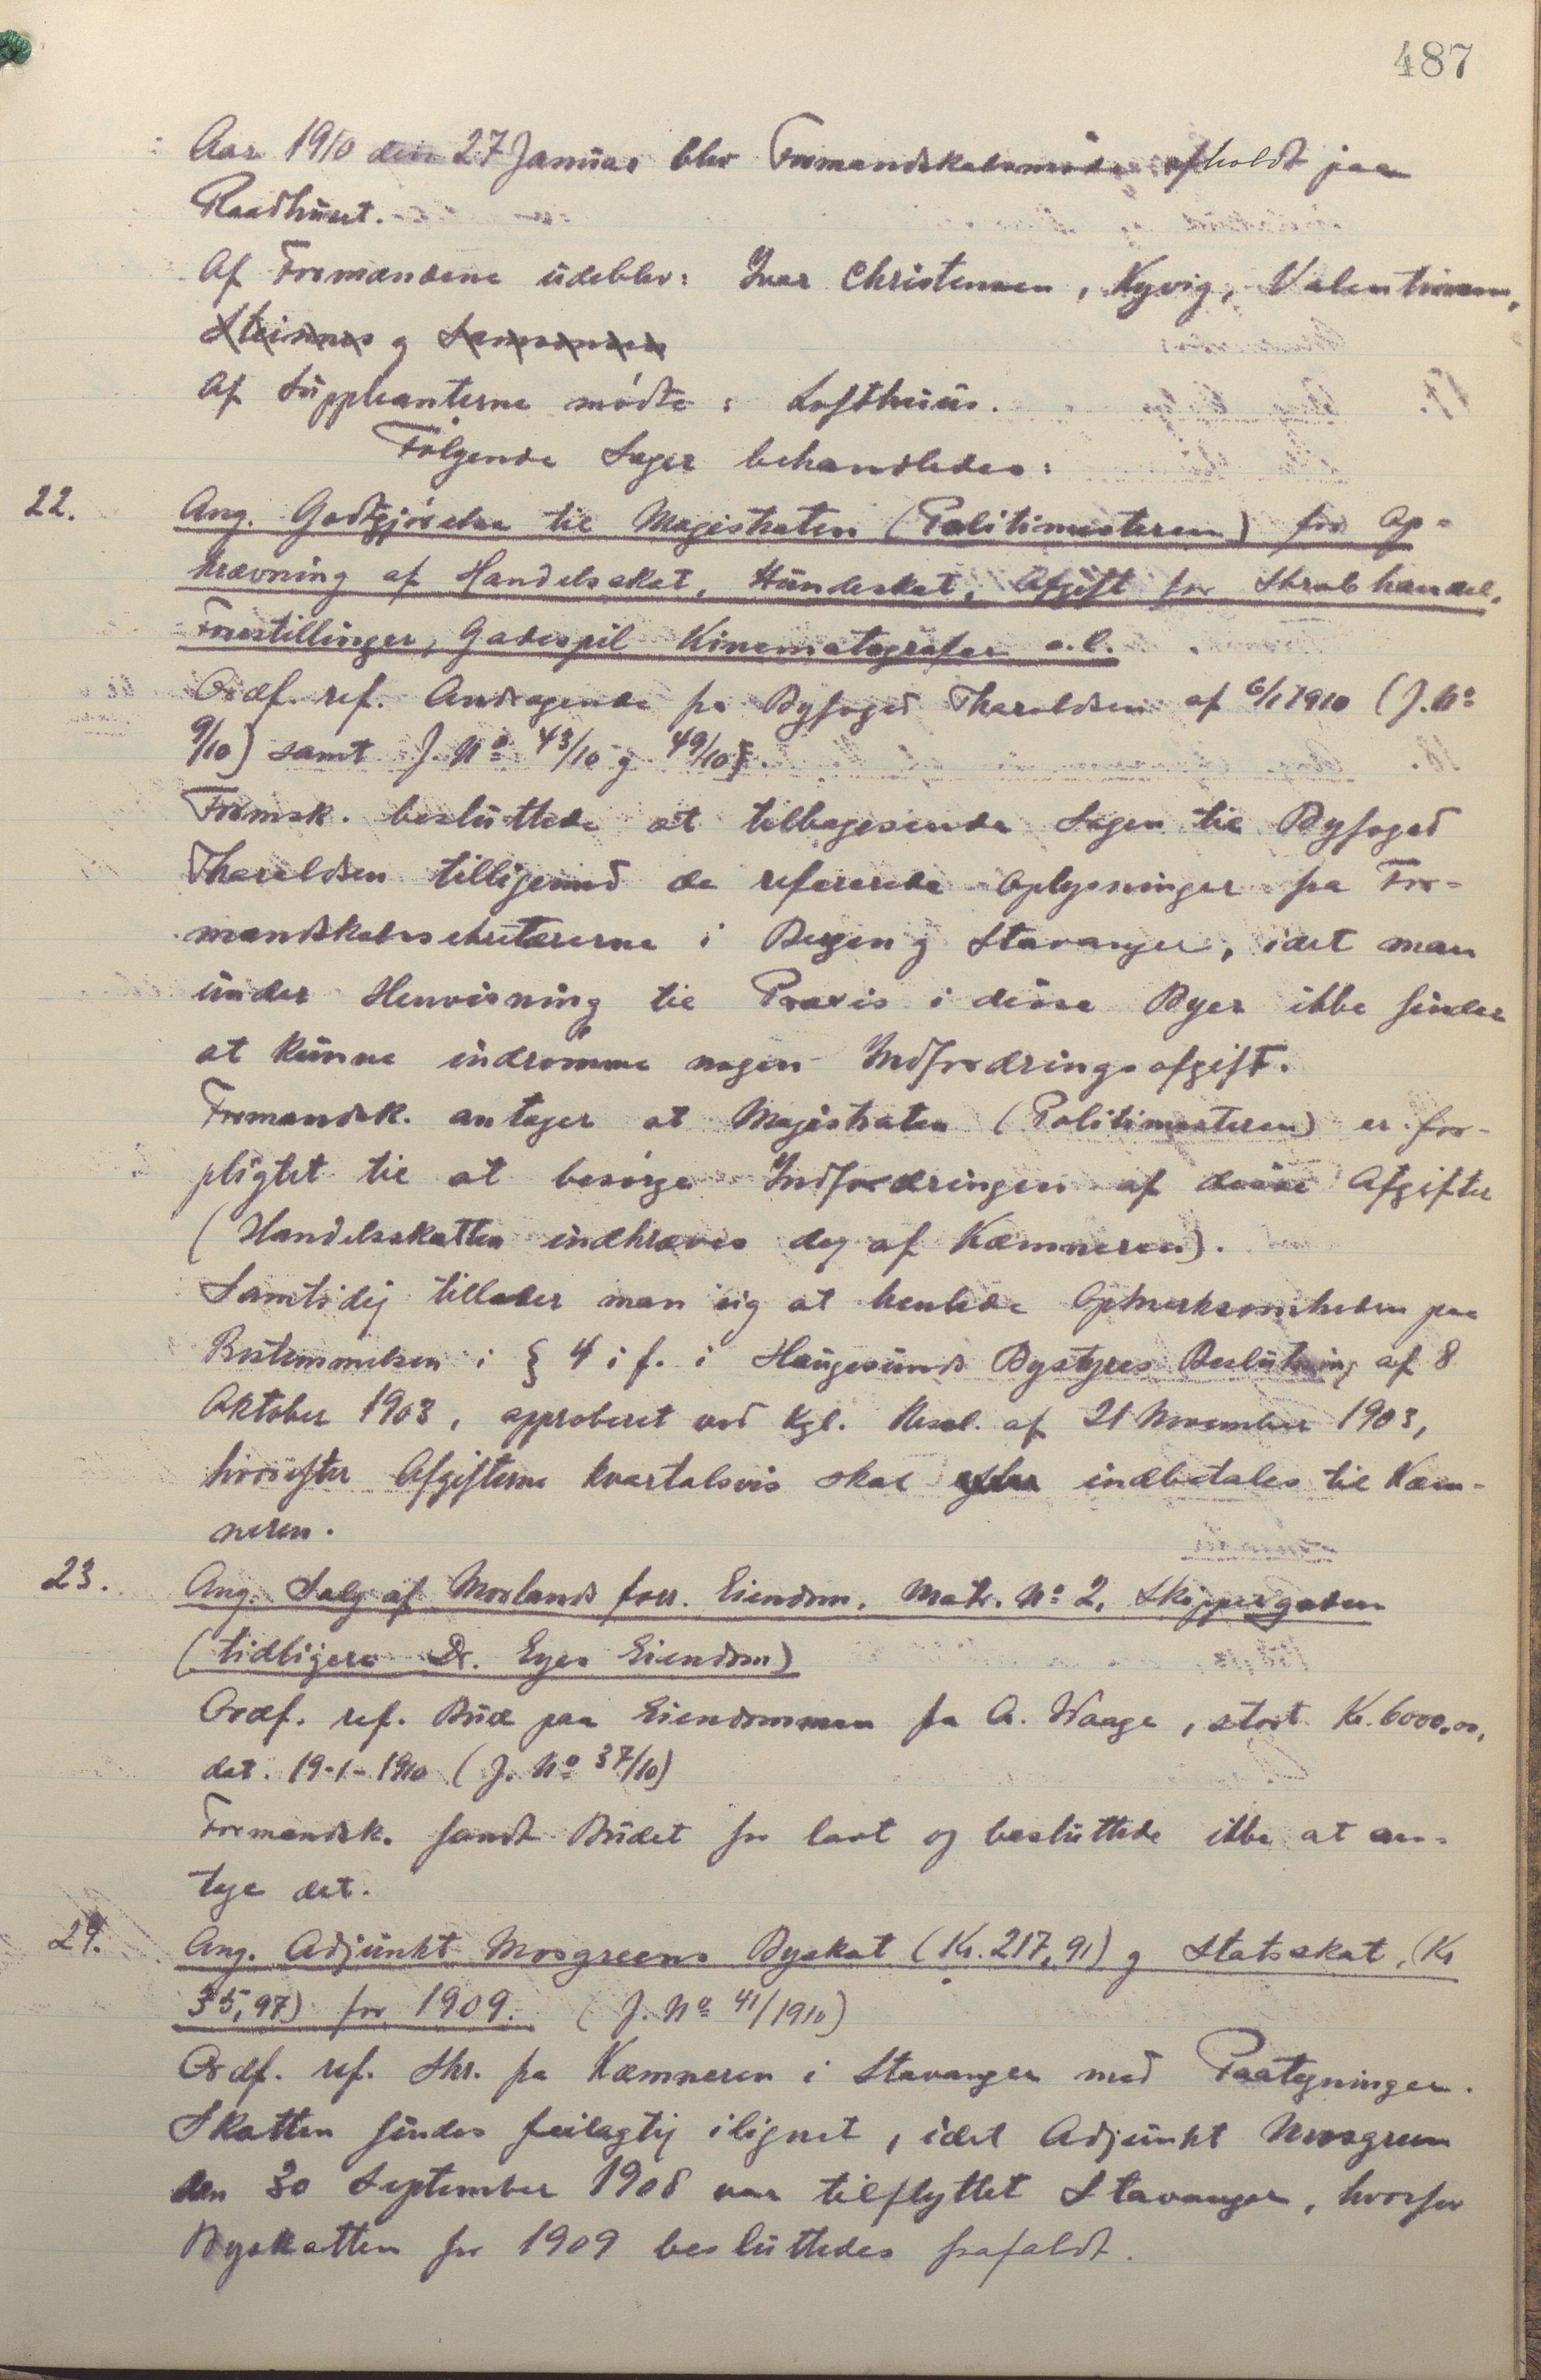 487
Aar 1910 den 27 Januar blev Formandskabsmøde afholdt paa
Raadhuset.
Af Formændene udeblev: Ivar Christensen, Kyvig, Valentinsen,
Steinnes og Samsonsen
Af Suppleanterne mødte: Lofthuus.
Følgende Sager behandledes:
22. Ang. Godtgjørelse til Magistraten (Politimesteren) for Op-
krævning af Handelsskat, Hundeskat, Afgift for Skrabhandel,
Forestillinger, Gadespil Kinematografer o.l.
Ordf. ref. Andragende fra Byfoged Tharaldsen af 6/1 1910 (J. No
9/10) samt J. No 43/10 og 49/10.
Formsk. besluttede at tilbagesende Sagen til Byfoged
Tharaldsen tilligemed de refererede Oplysninger fra For-
mandskabssekretærerne i Bergen og Stavanger, idet man
under Henvisning til Praxis i disse Byer ikke finder
at kunne indrømme nogen Indfordringsafgift.
Formandsk. antager at Magistraten (Politimesteren) er for-
pligtet til at besørge Indfordringen af disse Afgifter
(Handelsskatten indkræves dog af Kæmneren).
Samtidig tillader man sig at henlede Opmerksomheden paa
Bestemmelsen i § 4 i f. i Haugesunds Bystyres Beslutning af 8
Oktober 1903, approberet ved Kgl. Resol. af 21 November 1903,
hvorefter Afgifterne kvartalsvis skal indbetales til Kæm-
neren.
23. Ang. Salg af Morlands forr. Eiendom, Matr. No 2, Skippergaden
(tidligere Dr. Eyes Eiendom)
Ordf. ref. Bud paa Eiendommen fra A. Waage, stort Kr. 6000,00,
dat. 19-1-1910 (J. No 37/10)
Formandsk. fandt Budet for lavt og besluttede ikke at an-
tage det.
24. Ang. Adjunkt Mosgreens Byskat (Kr. 217,91) og Statsskat, (Kr
35,97) for 1909. (J. No 41/1910)
Ordf. ref. Skr. fra Kæmneren i Stavanger med Paategninger.
Skatten findes feilagtig ilignet, idet Adjunkt Mosgreen
den 30 September 1908 var tilflyttet Stavanger, hvorfor
Byskatten for 1909 besluttedes frafaldt.